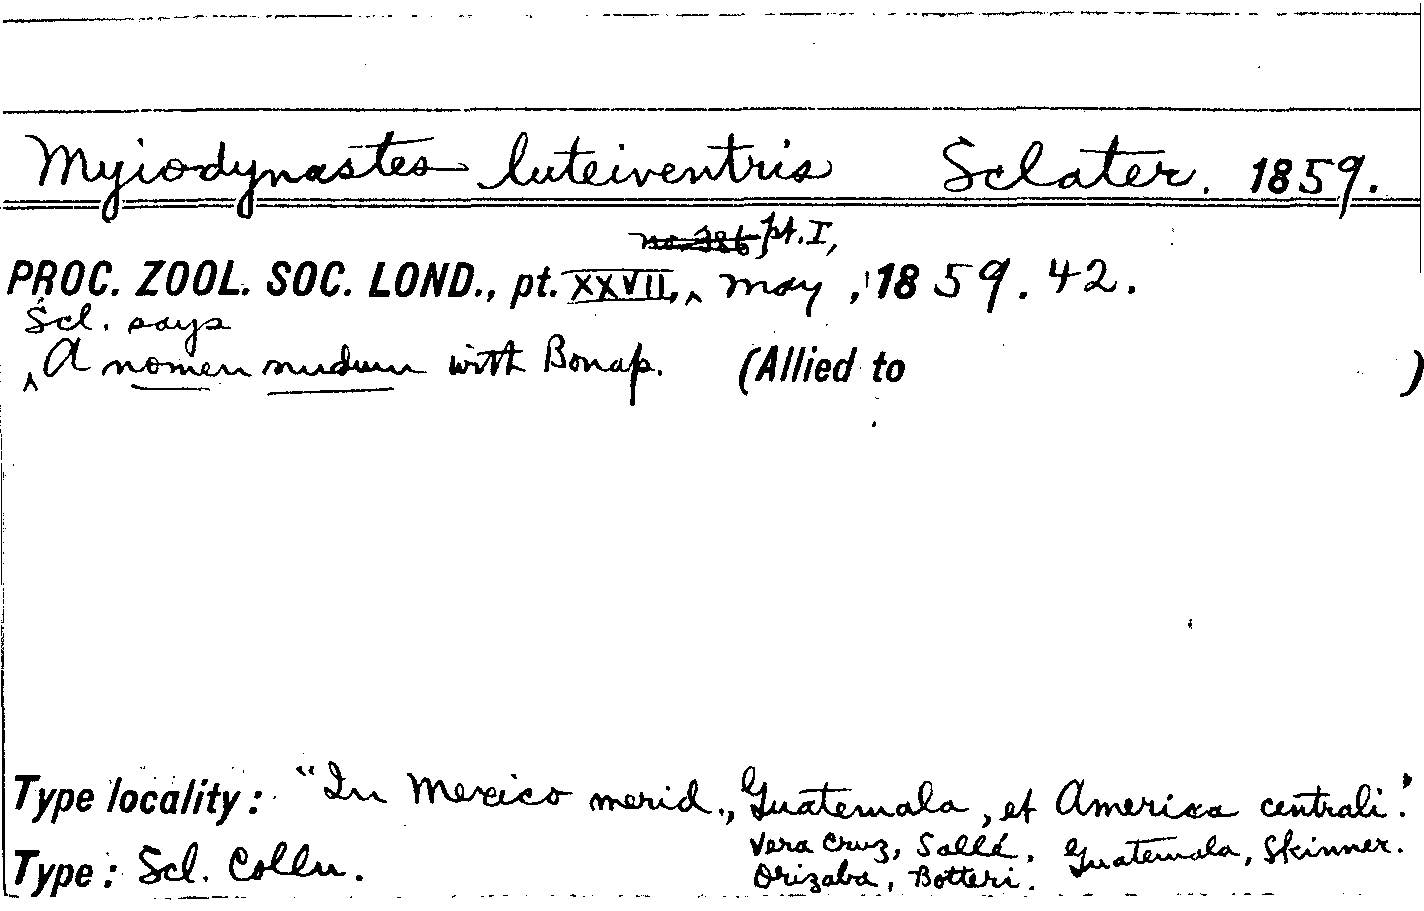 Myiodynastes luteiventris Sclater. 1859.
pt. I,
PROC. ZOOL. SOC. LOND., pt. XXVII, ‸ May, 1859. 42.
Scl. says
‸ A nomen nudum with Bonap. (Allied to )
Type locality: "In Mexico merid., Guatemala, et America centrali."
Vera Cruz, Sallé. Guatemala, Skinner.
Type: Scl. Colln. Orizaba, Botteri.